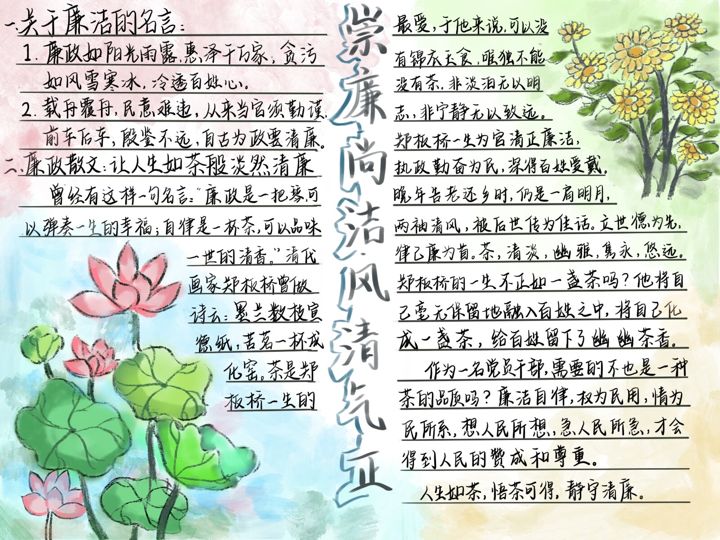 一.关于廉洁的名言:
1.廉政如阳光雨露,惠泽千万家,贪污
如风雪寒冰,冷透百姓心。
2.载舟覆舟,民意难违,从来当官须勤谨,
前车后车,殷鉴不远,自古为政要清廉。
二.廉政散文:让人生如茶般淡然清廉
曾经有这样一句名言:“廉政是一把琴,可
以弹奏一生的幸福;自律是一杯茶,可以品味
一世的清香。”清代
画家郑板桥曾做
诗云:墨兰数枝宣
德纸,苦茗一杯成
化窑。茶是郑
板桥一生的
崇廉尚洁风清气正
最爱,于他来说,可以没
有锦衣玉食,唯独不能
没有茶,非淡泊无以明
志,非宁静无以致远。
郑板桥一生为官清正廉洁,
执政勤奋为民,深得百姓爱戴,
晚年告老还乡时,仍是一肩明月,
两袖清风,被后世传为佳话。立世德为先,
律己廉为首。茶,清淡,幽雅,隽永,悠远。
郑板桥的一生不正如一盏茶吗?他将自
己毫无保留地融入百姓之中,将自己化
成一盏茶,给百姓留下了幽幽茶香。
作为一名党员干部,需要的不也是一种
茶的品质吗?廉洁自律,权为民用,情为
民所系,想人民所想,急人民所急,才会
得到人民的赞成和尊重。
人生如茶,悟茶可得,静守清廉。